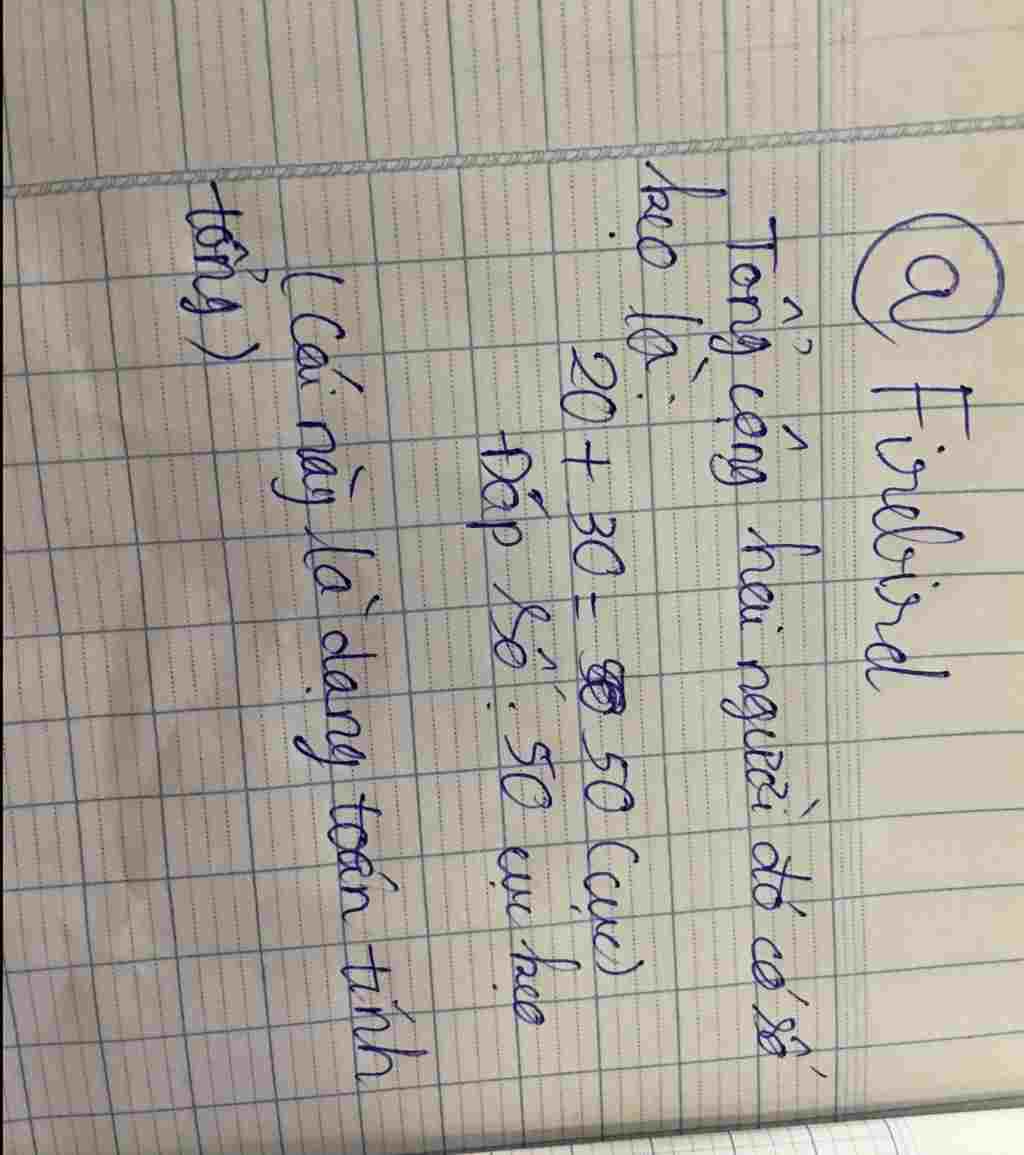 @ Firebird
Tổng cộng hai người đó có số
kẹo là:
20 + 30 = 50 (cục)
Đáp số: 50 cục kẹo
(Cái này là dạng toán tính
tổng)